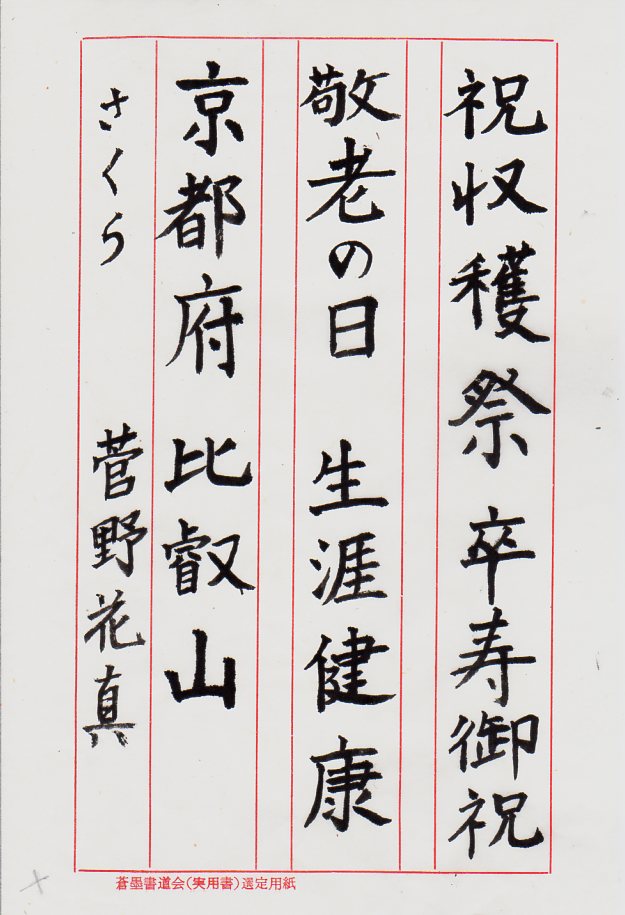 祝収穫祭 卒寿御祝
敬老の日 生涯健康
京都府 比叡山
さくら 菅野花真
蒼墨書道会(実用書)選定用紙